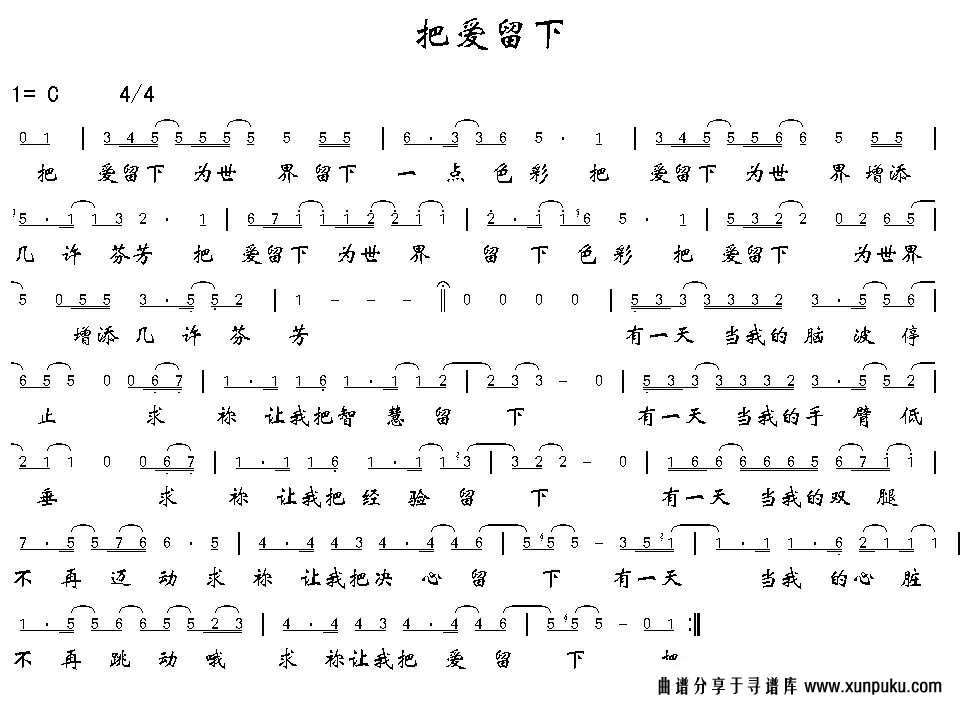 把爱留下
1= C 4/4
0 1 | 3 4 5 5 5 5 5 5 5 5 | 6 · 3 3 6 5 · 1 | 3 4 5 5 5 6 6 5 5 5 |
把 爱留下 为世 界 留下 一 点 色 彩 把 爱留下 为世 界 增添
5 · 1 1 3 2 · 1 | 6 7 i i i 2 2 i i | 2 · i i 6 5 · 1 | 5 3 2 2 0 2 6 5 |
几 许 芬芳 把 爱留下 为世 界 留 下 色 彩 把 爱留下 为世界
5 0 5 5 3 · 5 5 2 | 1 - - - || 0 0 0 0 | 5 3 3 3 3 3 2 3 · 5 5 6 |
增添 几 许 芬 芳 有一天 当我的 脑 波 停
6 5 5 0 0 6 7 | 1 · 1 1 6 1 · 1 1 2 | 2 3 3 - 0 | 5 3 3 3 3 3 2 3 · 5 5 2 |
止 求 祢 让我把智 慧 留 下 有一天 当我的手 臂 低
2 1 1 0 0 6 7 | 1 · 1 1 6 1 · 1 1 3 | 3 2 2 - 0 | 1 6 6 6 6 6 5 6 7 i i |
垂 求 祢 让我把 经 验 留 下 有一天 当我的双 腿
7 · 5 5 7 6 6 · 5 | 4 · 4 4 3 4 · 4 4 6 | 5 5 5 - 3 5 1 | 1 · 1 1 · 6 2 1 1 1 |
不 再 迈 动 求 祢 让我把决 心 留 下 有一天 当我 的心 脏
1 · 5 5 6 6 5 5 2 3 | 4 · 4 4 3 4 · 4 4 6 | 5 5 5 - 0 1 :||
不 再 跳 动 哦 求 祢让我把 爱 留 下 把
曲谱分享于寻谱库 www.xunpuku.com